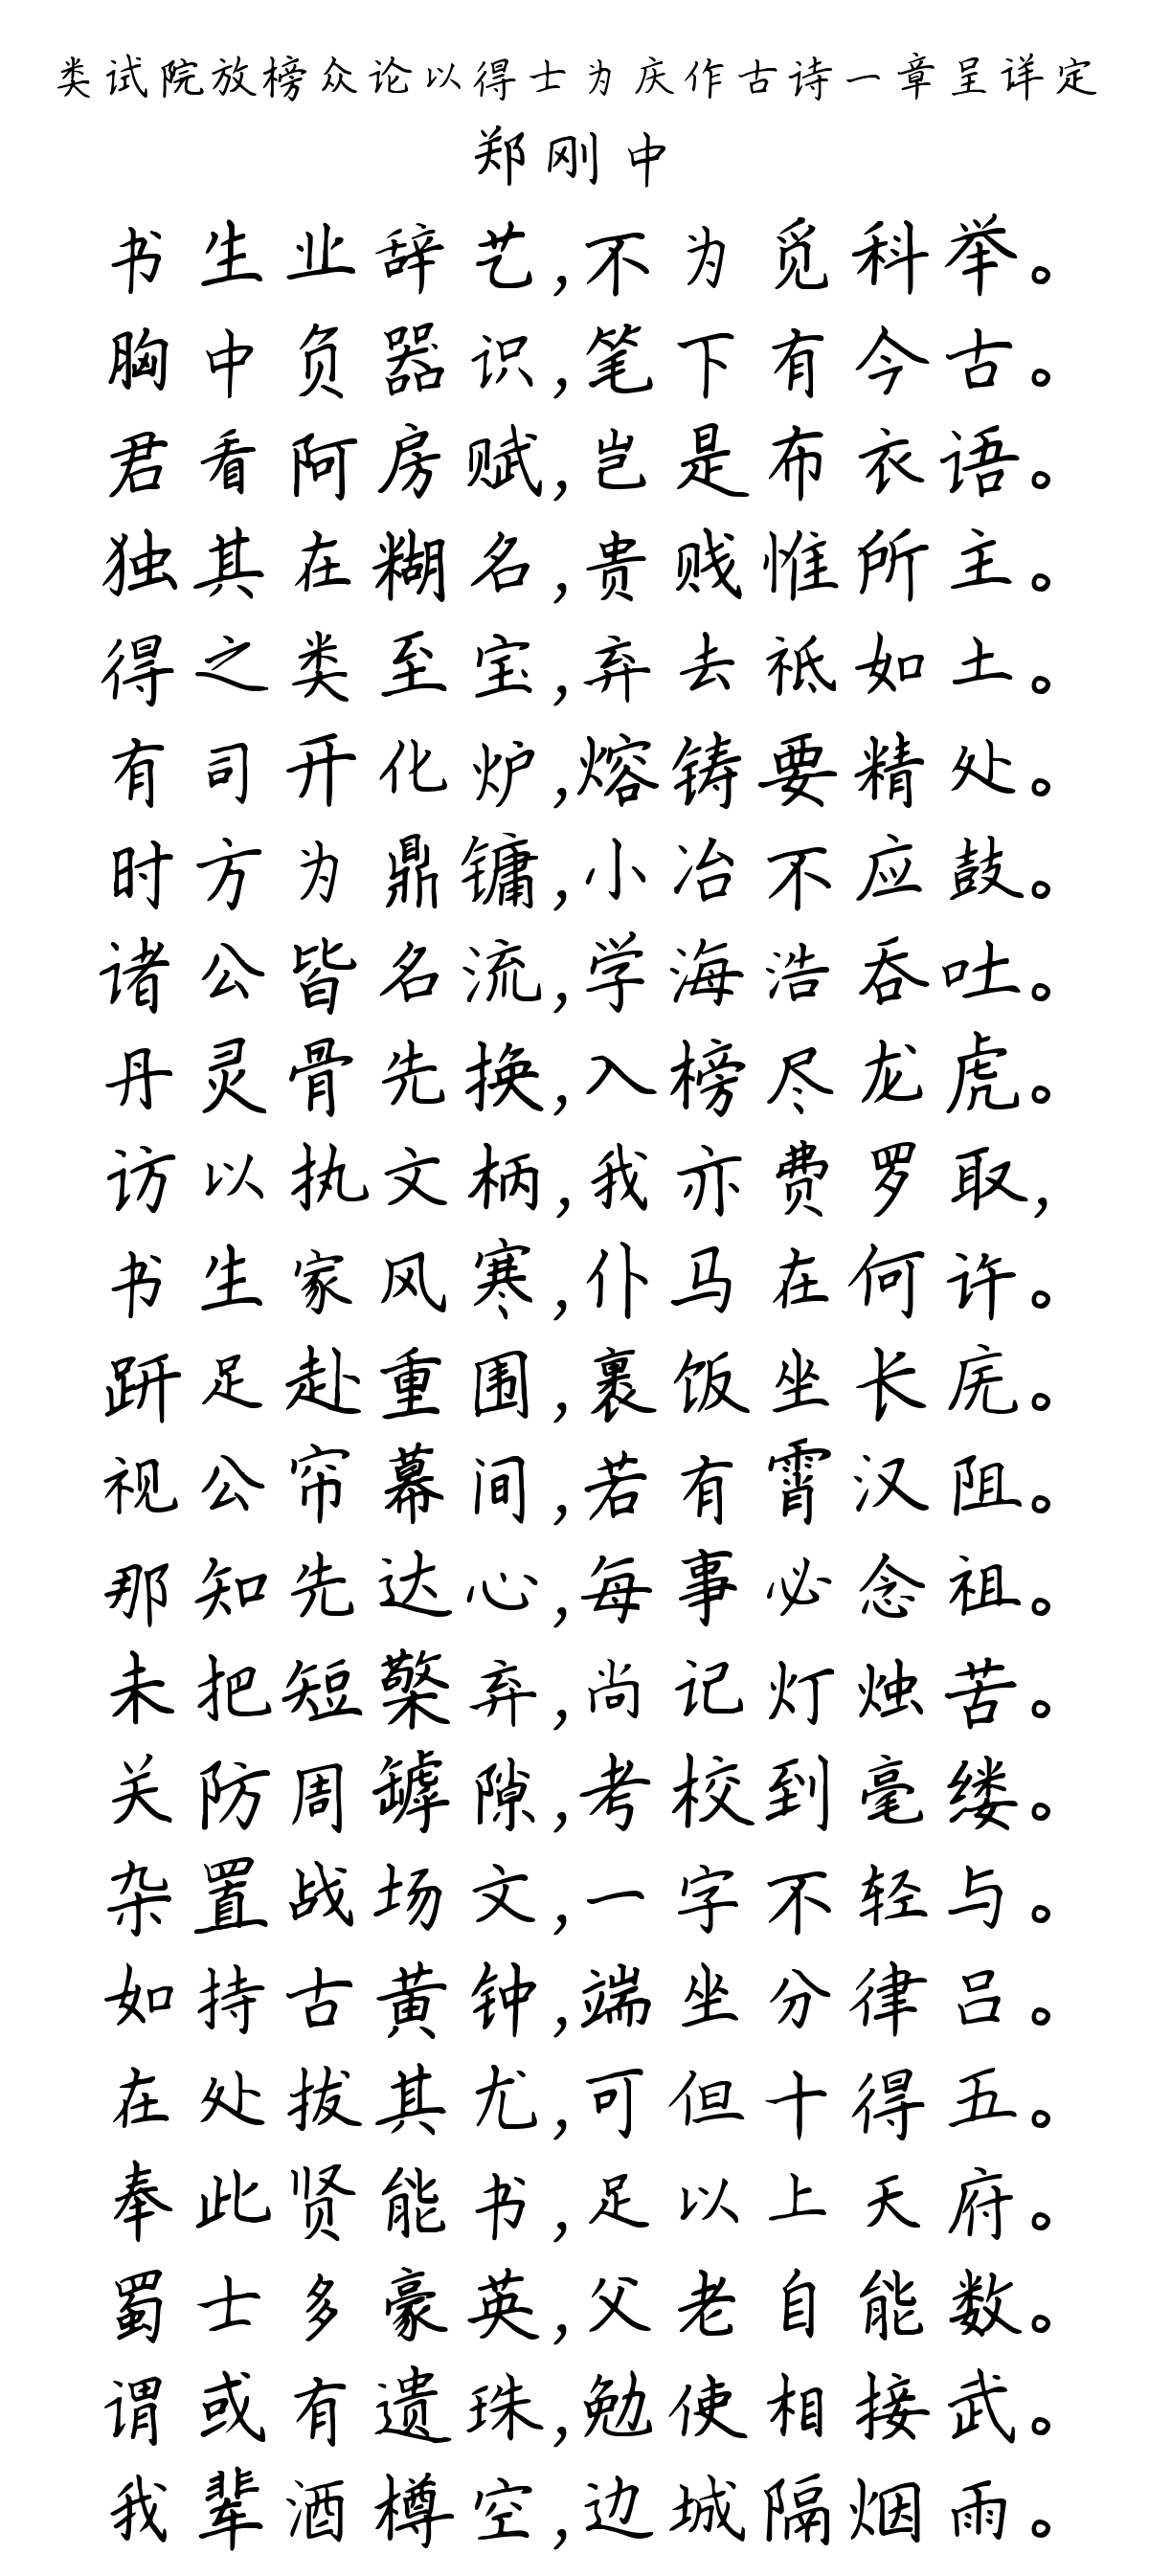 类试院放榜众论以得士为庆作古诗一章呈详定
郑刚中
书生业辞艺,不为觅科举。
胸中负器识,笔下有今古。
君看阿房赋,岂是布衣语。
独其在糊名,贵贱惟所主。
得之类至宝,弃去祇如土。
有司开化炉,熔铸要精处。
时方为鼎镛,小冶不应鼓。
诸公皆名流,学海浩吞吐。
丹灵骨先换,入榜尽龙虎。
访以执文柄,我亦费罗取,
书生家风寒,仆马在何许。
趼足赴重围,裹饭坐长庑。
视公帘幕间,若有霄汉阻。
那知先达心,每事必念祖。
未把短檠弃,尚记灯烛苦。
关防周罅隙,考校到毫缕。
杂置战场文,一字不轻与。
如持古黄钟,端坐分律吕。
在处拔其尤,可但十得五。
奉此贤能书,足以上天府。
蜀士多豪英,父老自能数。
谓或有遗珠,勉使相接武。
我辈酒樽空,边城隔烟雨。